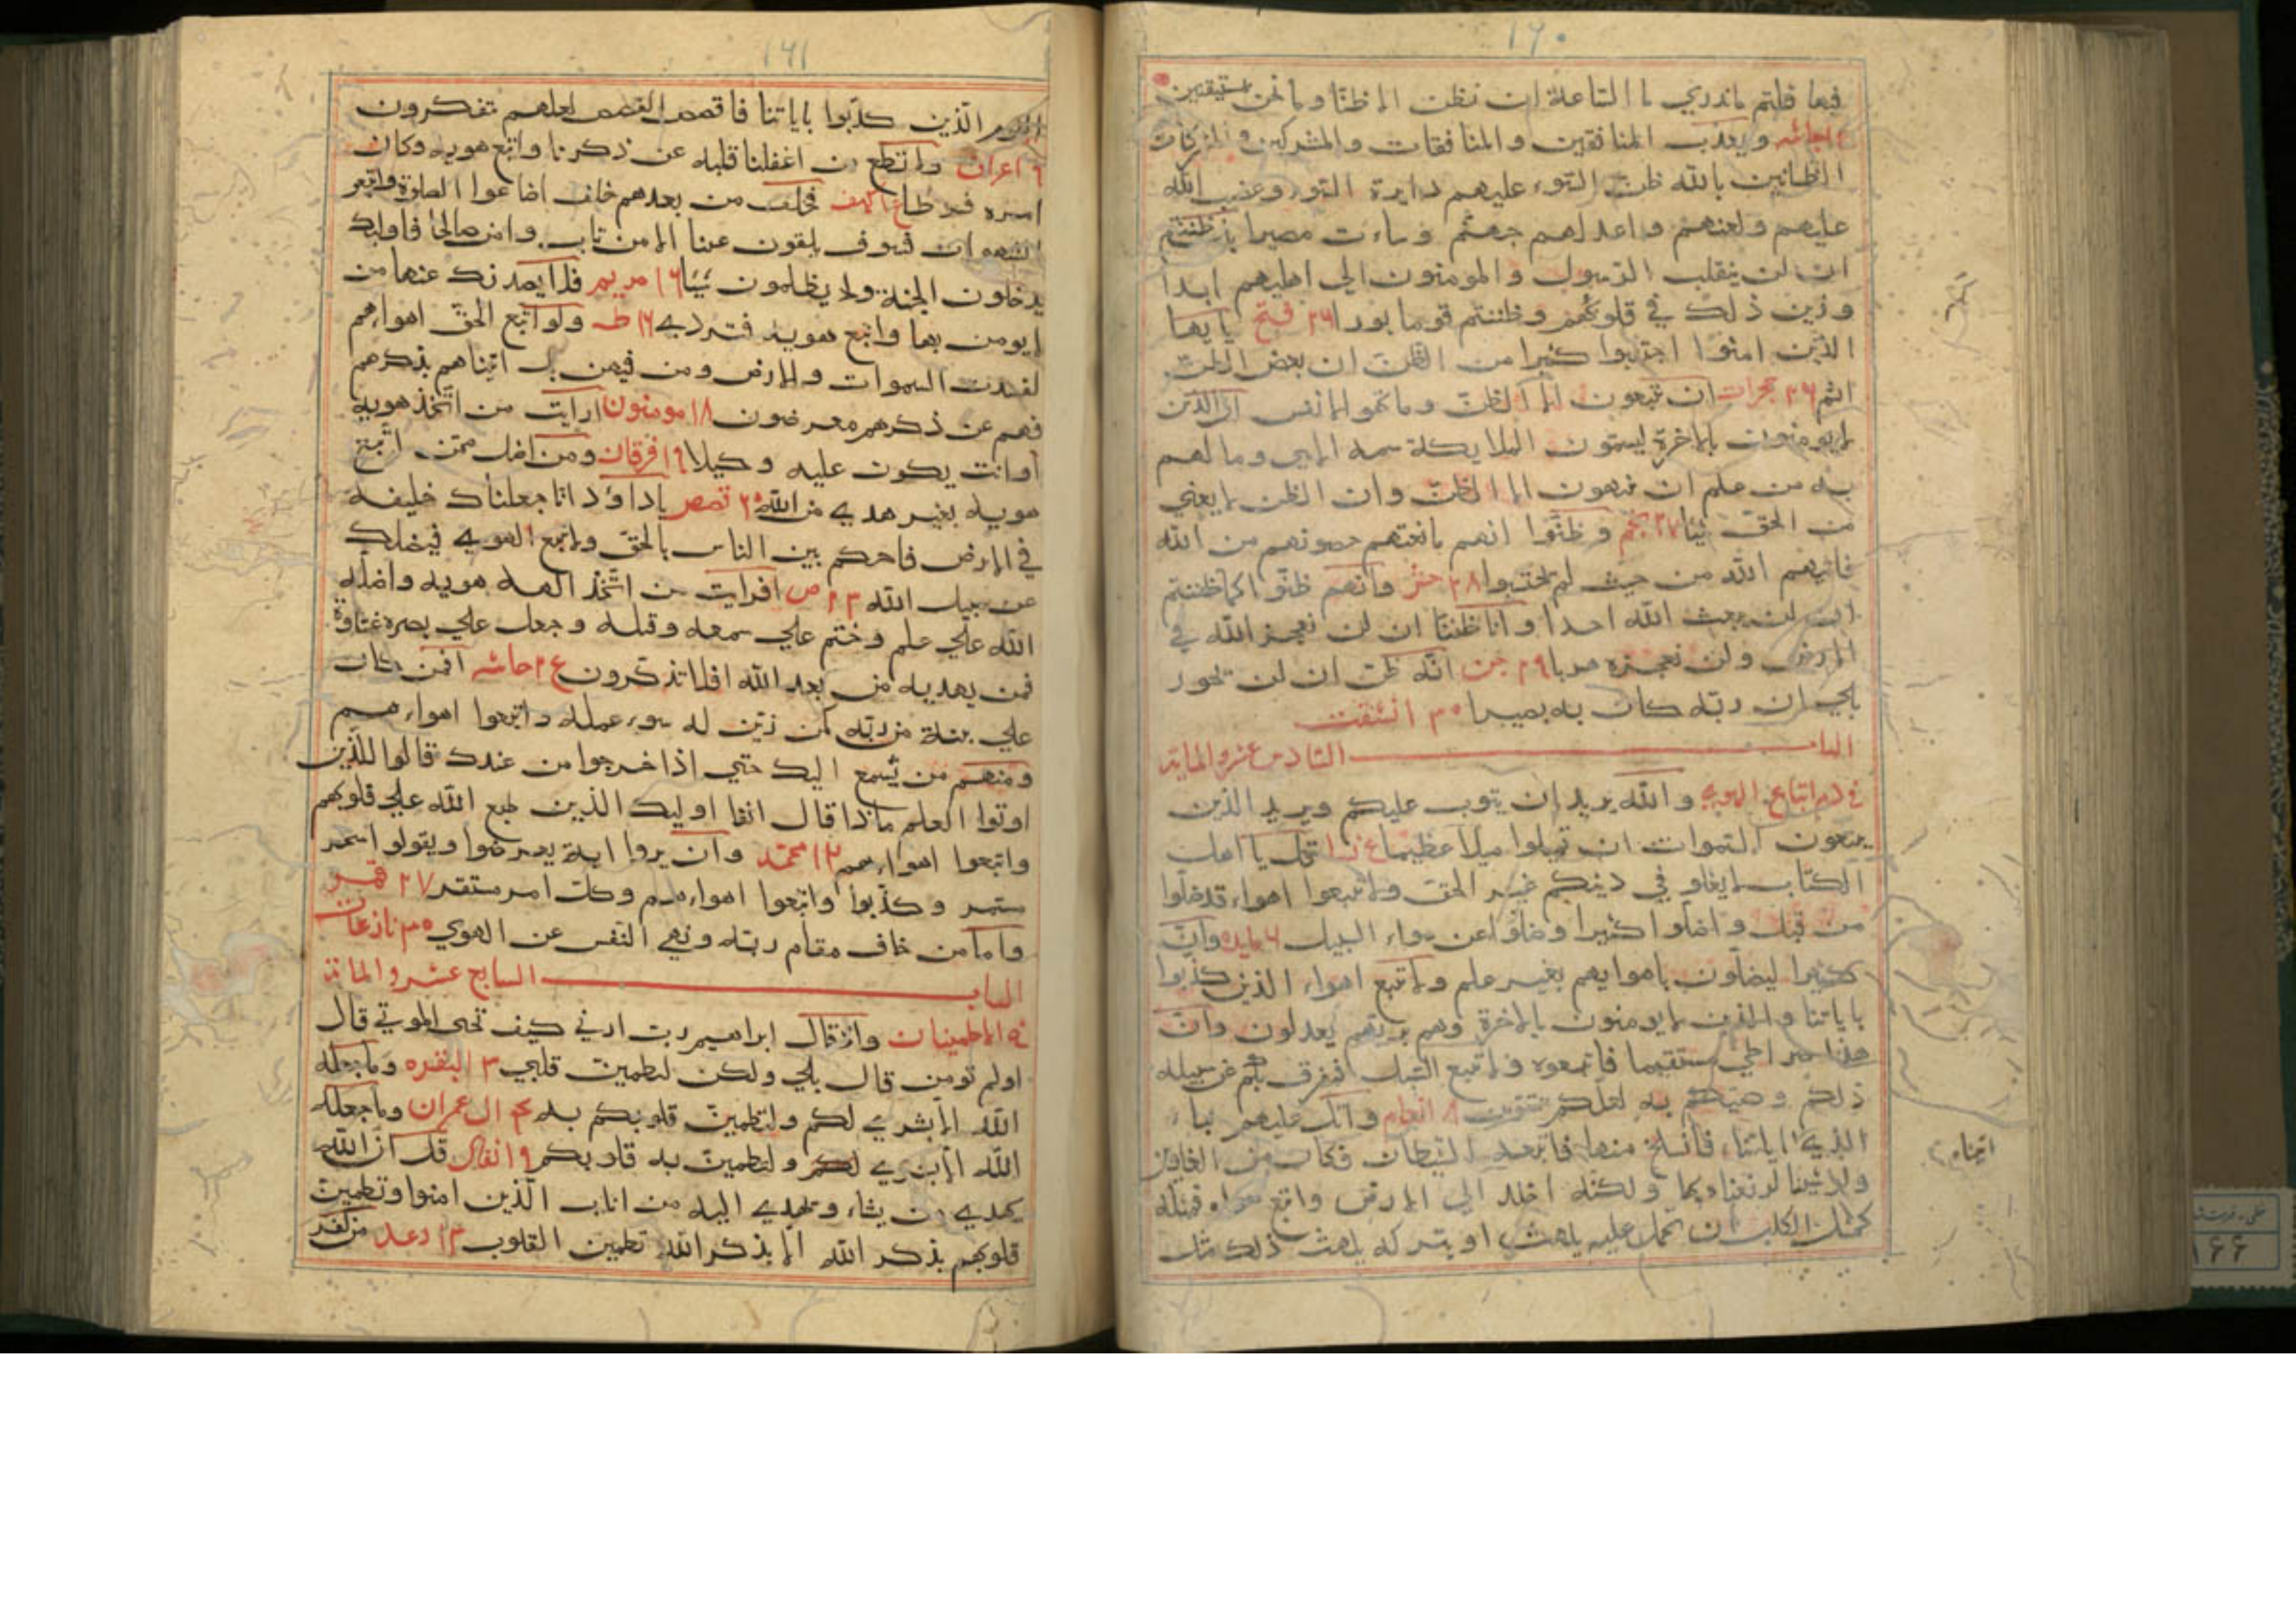 ١٦٠
فيها قلتم ماندري ما الساعة ان نظن الا ظنا وما نحن بمستيقنين
جاثيه ويعذب المنافقين والمنافقات والمشركين والمشركات
الظانين بالله ظن السوء عليهم دايرة السوء وغضب الله
عليهم ولعنهم واعد لهم جهنم وساءت مصيرا بل ظننتم
ان لن ينقلب الرسول والمومنون الي اهليهم ابدا
وزين ذلك في قلوبكم وظننتم قوما بورا ٢٦ فتح يا ايها
الذين امنوا اجتنبوا كثيرا من الظن ان بعض الظن
اثم ٢٦ حجرات ان تتبعون الا الظن وما تهوا الانفس ان الذين
لايومنون بالاخرة ليسمون الملايكة تسمية الانثي وما لهم
به من علم ان يتبعون الا الظن وان الظن لايغني
من الحق شيئا ٢٧ نجم وظنوا انهم مانعتهم حصونهم من الله
فاتيهم الله من حيث لم يحتسبوا ٢٨ حشر وانهم ظنوا كما ظننتم
ان لن يبعث الله احدا وانا ظننا ان لن نعجز الله في
الارض ولن نعجزه هربا ٢٩ جن انه ظن ان لن يحور
بلي ان ربه كان به بصيرا ٣٠ انشقت
الباب السادس عشر والمايه
في ذم اتباع الهوي والله يريد ان يتوب عليكم ويريد الذين
يتبعون الشهوات ان تميلوا ميلا عظيما ٤ نسا قل يا اهل
الكتاب لايغلو في دينكم غير الحق ولاتتبعوا اهواء قد ضلوا
من قبل واضلوا كثيرا وضلوا عن سواء السبيل ٦ مايده وان
كثيرا ليضلون باهوايهم بغير علم ولاتتبع اهواء الذين كذبوا
باياتنا والذين لايومنون بالاخرة وهم بربهم يعدلون وان
هذا صراطي مستقيما فاتبعوه ولاتتبع السبل فتفرق بكم عن سبيله
ذلكم وصيكم به لعلكم تتقون ٨ انعام واتل عليهم نباء
الذي اياتنا فانسلخ منها فاتبعه الشيطان فكان من الغاوين
اتيناه
ولو شئنا لرفعناه بها ولكنه اخلد الي الارض واتبع هواه فمثله
كمثل الكلب ان تحمل عليه يلهث او يتركه يلهث ذلك مثل
١٦١
القوم الذين كذبوا باياتنا فاقصص القصص لعلهم تفكرون
٩ اعراف ولاتطع من اغفلنا قلبه عن ذكرنا واتبع هويه وكان
امره فرطا كهف فخلف من بعدهم خلف اضاعوا الصلوة واتبعو
الشهوات فسوف يلقون عنا الا من تاب وامن صالحا فاولئك
يدخلون الجنة ولا يظلمون شيئا ١٦ مريم فلا يصدنك عنها من
لايومن بها واتبع هويه فتردي ١٦ طه ولو اتبع الحق اهواءهم
لفسدت السموات والارض ومن فيهن بل اتيناهم بذكرهم
فهم عن ذكرهم معرضون ١٨ مومنون ارايت من اتخذ هويه
افانت يكون عليه وكيلا ١٩ فرقان ومن اضل ممن اتبع
هويه بغير هدي من الله ٢٠ قصص ياداؤد انا جعلناك خليفه
في الارض فاحكم بين الناس بالحق ولاتتبع الهوي فيضلك
عن سبيل الله ٢٣ ص افرايت من اتخذ الهه هويه واضله
الله علي علم وختم علي سمعه وقلبه وجعل علي بصره غشاوة
فمن يهديه من بعد الله افلا تذكرون ٢٤ حاشه افمن كان
علي بينة من ربه كمن زين له سوء عمله واتبعوا اهواءهم
ومنهم من يستمع اليك حتي اذا خرجوا من عندك قالوا للذين
اوتوا العلم ماذا قال انفا اوليك الذين طبع الله علي قلوبهم
واتبعوا اهواءهم محمد وان يروا اية يعرضوا ويقولو اسحر
مستمر وكذبوا واتبعوا اهواءهم وكل امر مستقر ٢٧ قمر
واما من خاف مقام ربه ونهي النفس عن الهوي ٣٠ نازعات
الباب السابع عشر والمايه
في الاطمينان واذ قال ابراهيم رب ارني كيف تحي الموتي قال
اولم تومن قال بلي ولكن ليطمين قلبي ٣ البقره وماجعله
الله الا بشري لكم ولتطمين قلوبكم به ال عمران وماجعله
الله الا بشري لكم ولتطمين به قلوبكم ٩ انفال قل ان الله
يهدي من يشاء ويهدي اليه من اناب الذين امنوا وتطمين
قلوبهم بذكر الله الا بذكر الله تطمين القلوب ١٣ رعد من كفر